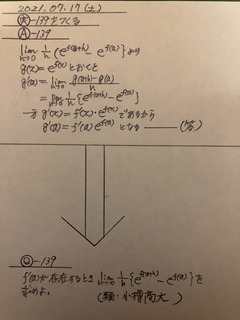 2021.07.17(土)
139をつくる
Ⓐ-139
lim h→0 1/h {e^f(a+h) - e^f(a)} より
g(x)=e^f(x) とおくと
g'(a)= lim h→0 g(a+h)-g(a)/h
= lim h→0 1/h {e^f(a+h) - e^f(a)}
一方 g'(x)=f'(x)・e^f(x) であるから
g'(a)=f'(a)e^f(a) となる ——(答)
-139
f'(a)が存在するとき lim h→0 1/h {e^f(a+h) - e^f(a)} を
求めよ。
(類・小樽商大)